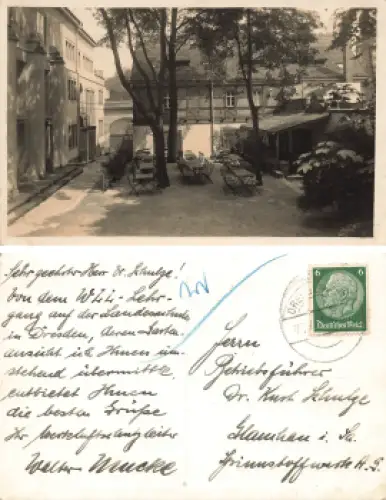 Sehr geehrter Herr Dr. Schulze!
Von dem Lehr-
gang auf der Landesschule
in Dresden, deren Garten-
ansicht ich Ihnen um-
stehend übermittle,
entbietet Ihnen
die besten Grüße
Ihr
Walter
Herrn
Betriebsführer
Dr. Kurt Schulze
Glauchau i. Sa.
Spinnstoffwerk A. G.
6 6
Deutsches Reich